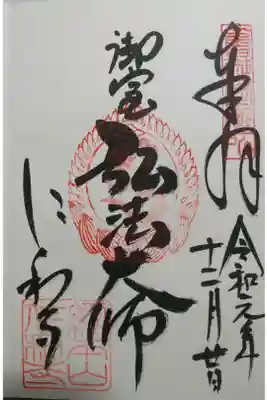 奉拝
令和元年
十二月廿日
御室
弘法大師
に和寺